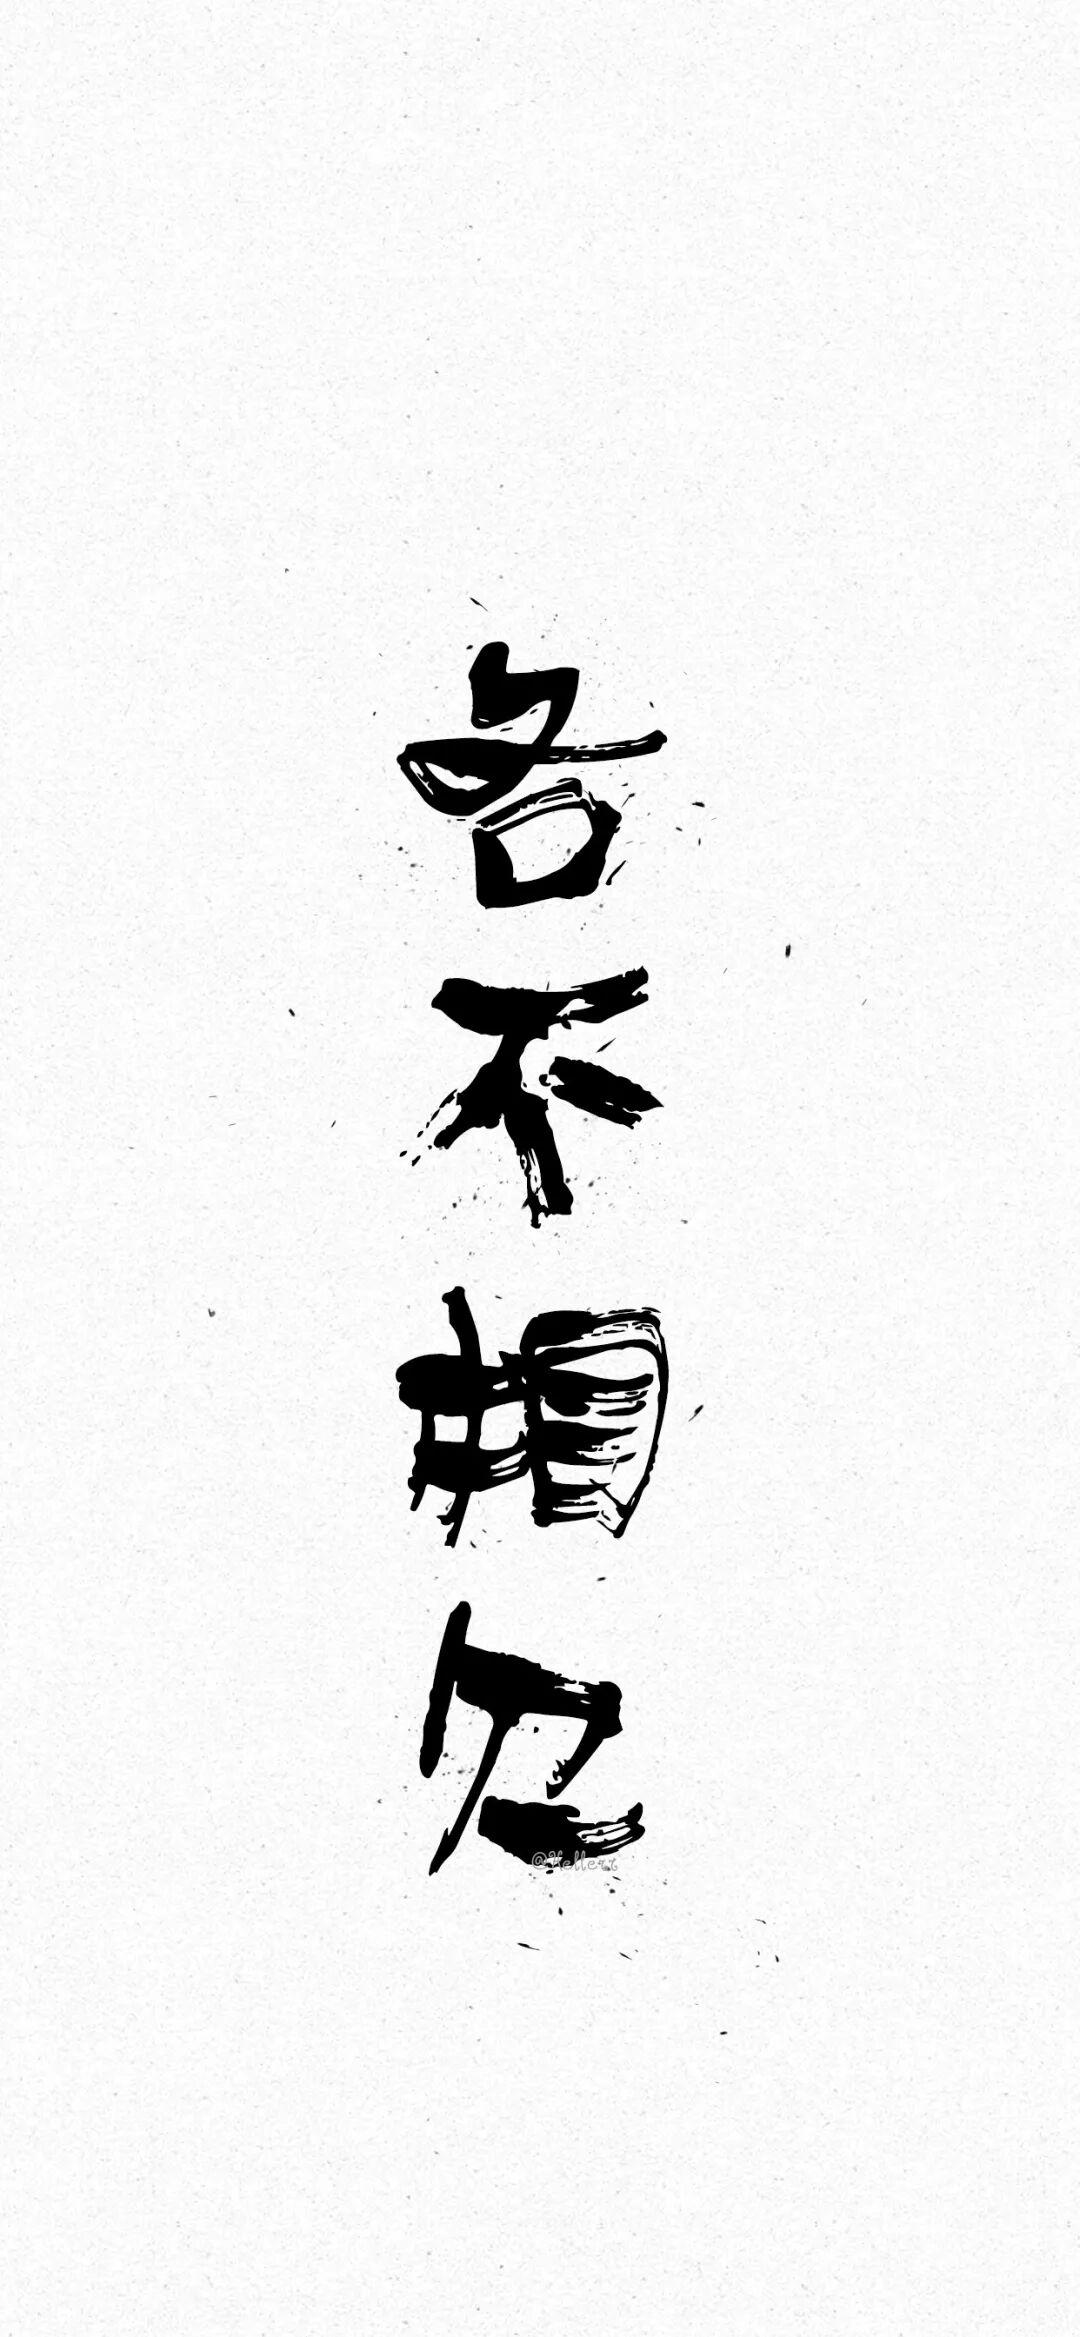 各不相欠
@Kellerr